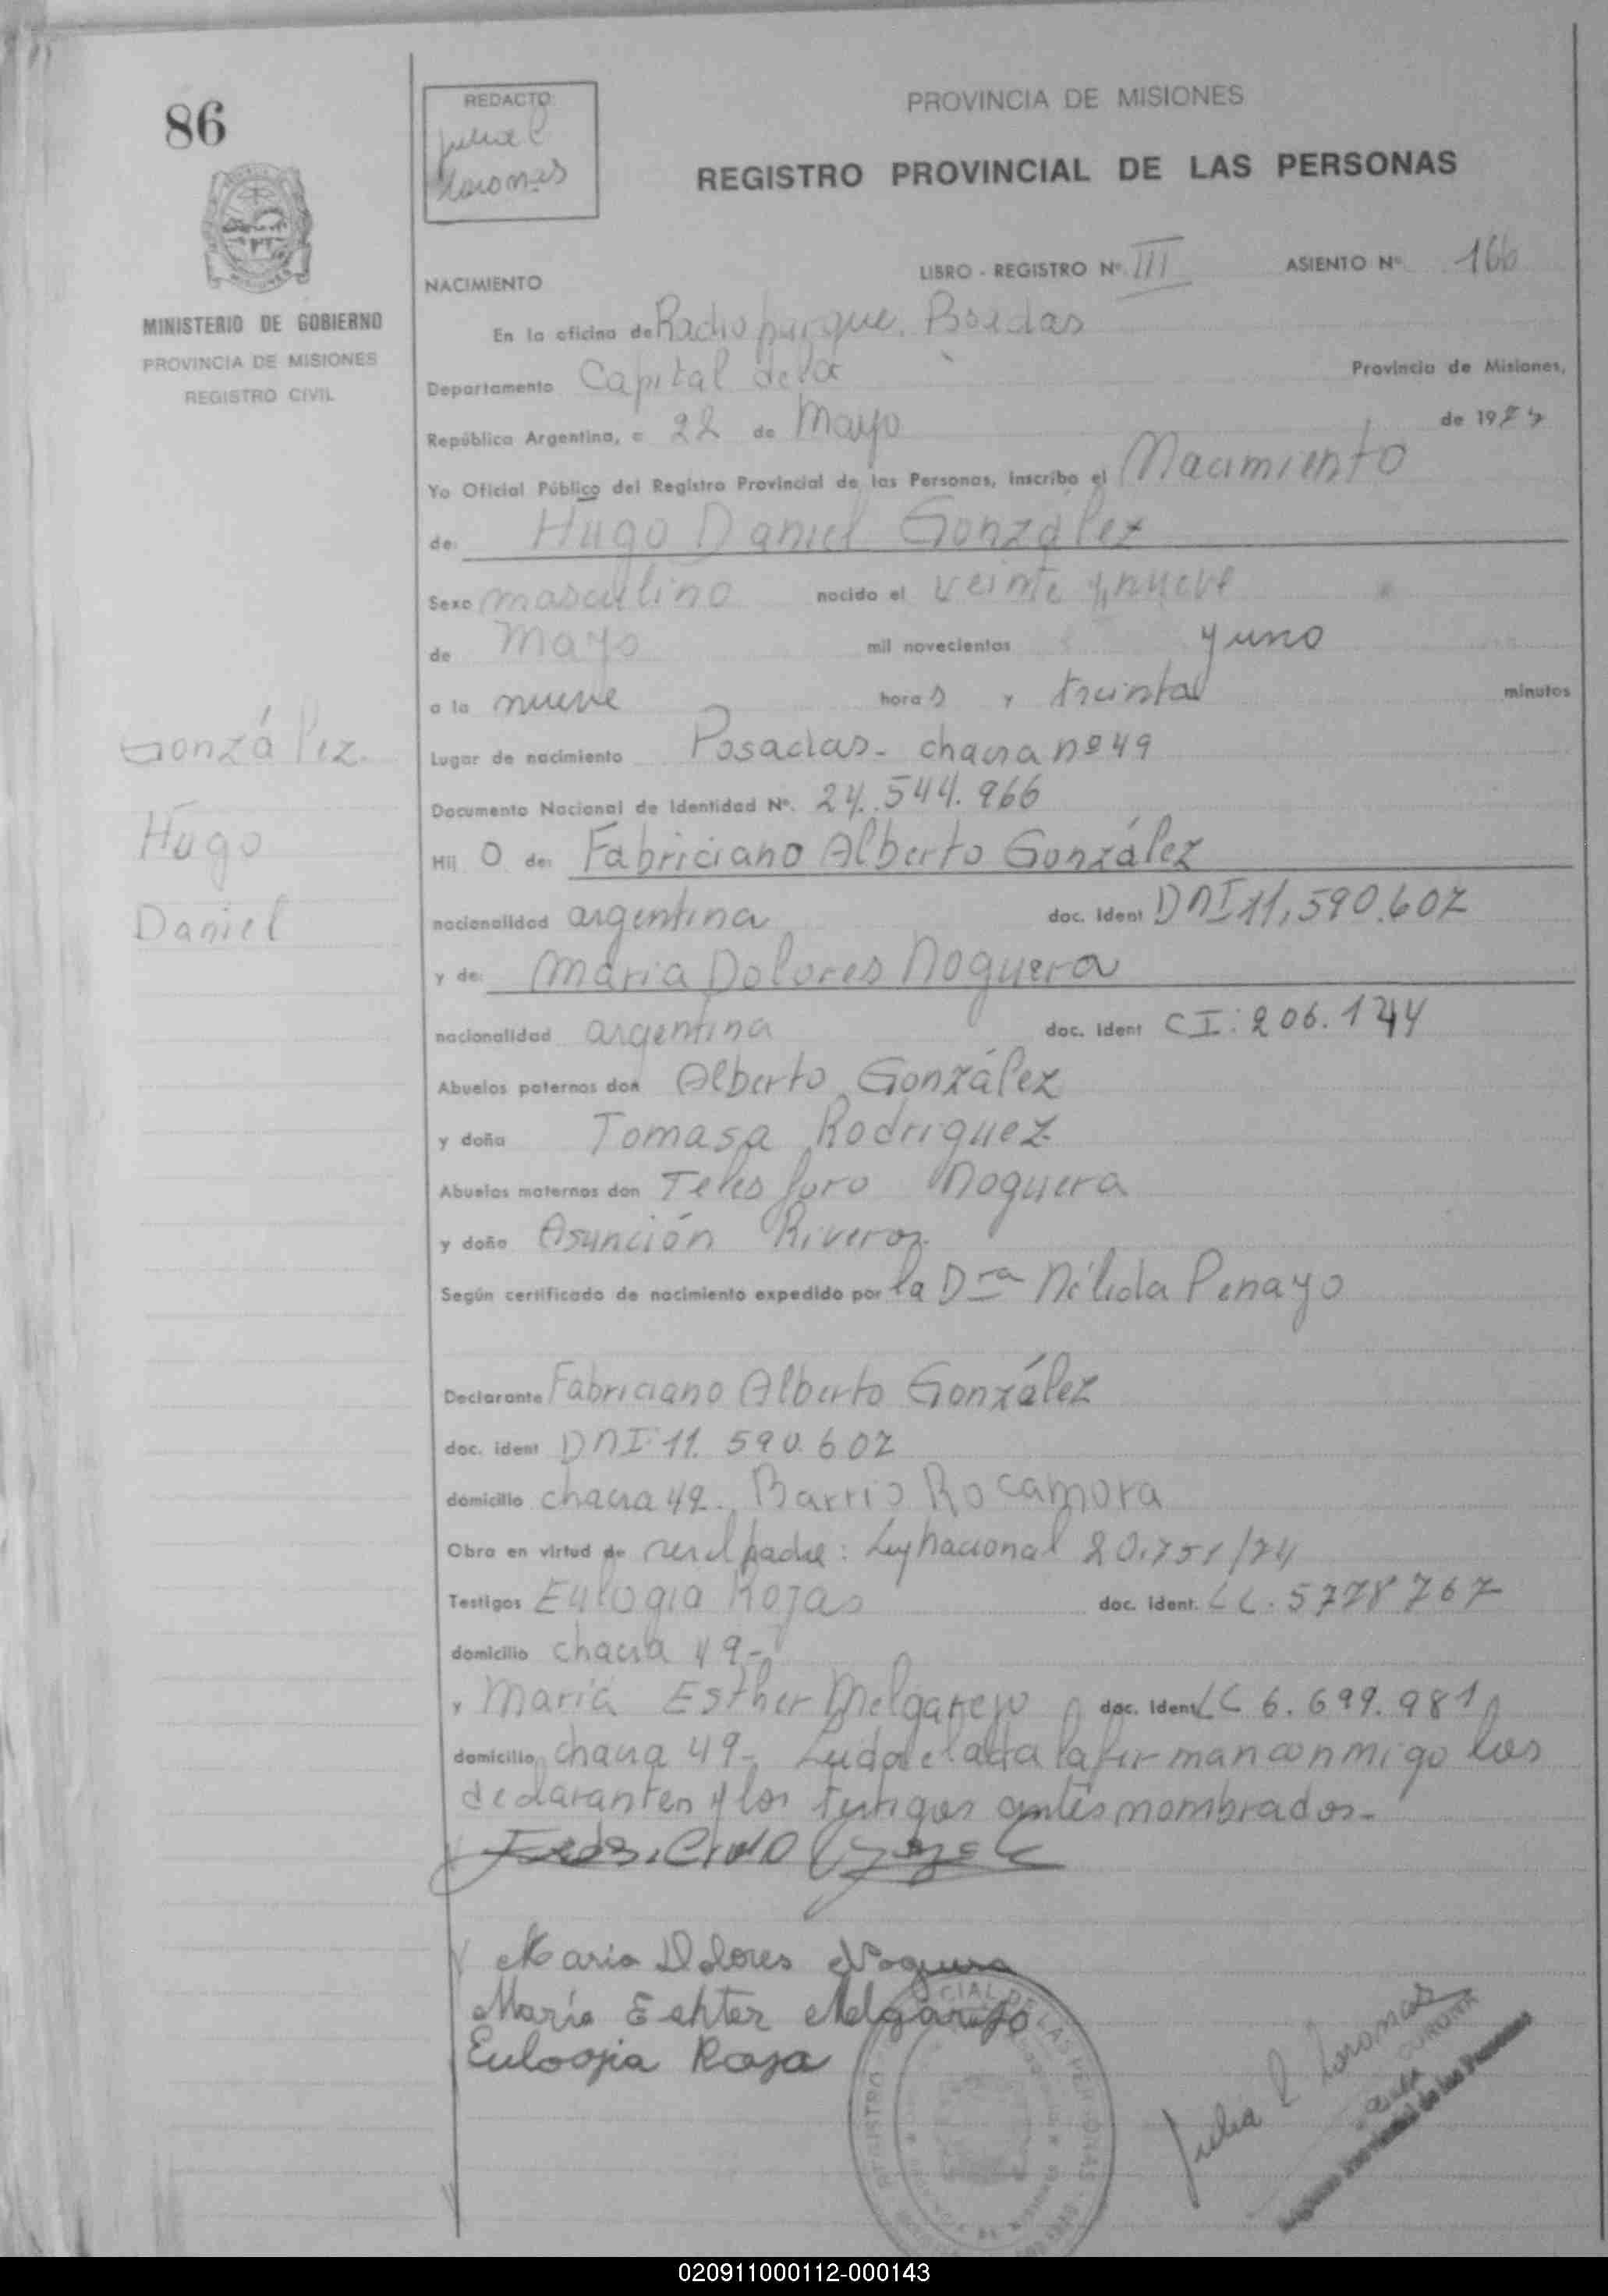 86
REDACTO:
PROVINCIA DE MISIONES
REGISTRO PROVINCIAL DE LAS PERSONAS
LIBRO - REGISTRO Nº III
ASIENTO Nº 166
NACIMIENTO
MINISTERIO DE GOBIERNO
PROVINCIA DE MISIONES
REGISTRO CIVIL
En la oficina de Radioparque.
Departamento Capital de la Provincia de Misiones,
República Argentina, a 22 de Mayo de 19
Yo Oficial Público del Registro Provincial de las Personas, inscribo el Nacimiento
de: Hugo Daniel González
Sexo masculino nacido el veinte y nueve
de Mayo mil novecientos y uno
a la nueve horas y treinta minutos
Lugar de nacimiento Posadas - chacra nº 49
Documento Nacional de Identidad Nº. 24.544.966
Hijo de: Fabriciano Alberto González
nacionalidad argentina doc. ident DNI 11.590.607
y de: Maria Dolores Noguera
nacionalidad argentina doc. ident CI: 206.144
Abuelos paternos don Alberto González
y doña Tomasa Rodriguez
Abuelos maternos don Telesforo Noguera
y doña Asunción Riveros
Según certificado de nacimiento expedido por la Dra Nélida Penayo
Declarante Fabriciano Alberto González
doc. ident DNI 11.590.607
domicilio chacra 49. Barrio Rocamora
Obra en virtud de ser el padre: Ley nacional 20.751/74
Testigos Eulogia Rojas doc. ident. LC. 5778767
domicilio chacra 49 -
y Maria Esther Melgarejo doc. ident LC 6.699.981
domicilio chacra 49 - Leida el acta la firman conmigo los
declarantes y los testigos antes nombrados -
González
Hugo
Daniel
Maria Dolores Noguera
María Eshter Melgarejo
Euloojia Roja
Julia
020911000112-000143